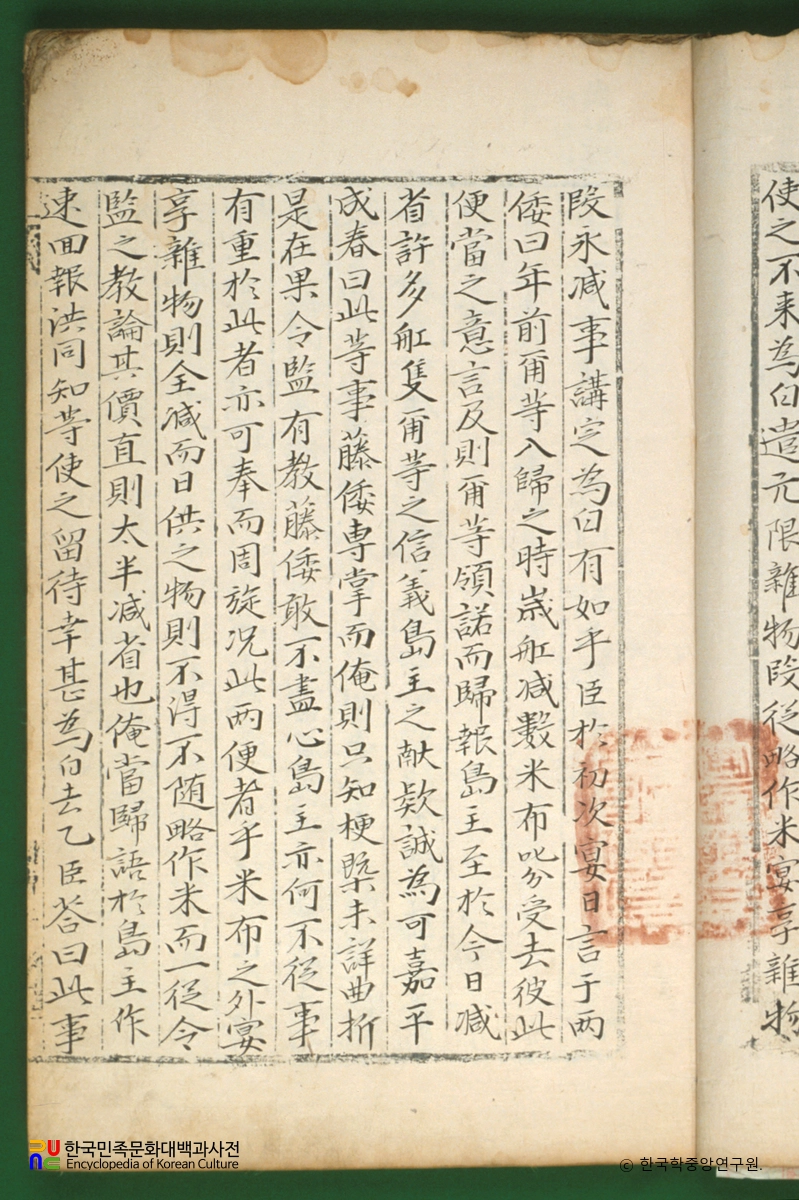 使之不来為白遣元限雜物段從略作米宴享雜物
段永减事講定為白有如乎臣於初次宴日言于兩
倭曰年前爾等入歸之時歲舡减數米布㕦分受去彼此
便當之意言及則爾等領諾而歸報島主至於今日减
省許多舡隻爾等之信義島主之献欵誠為可嘉平
成春曰此等事藤倭専掌而俺則只知梗槩未詳曲折
是在果令監有教藤倭敢不盡心島主亦何不從事
有重於此者亦可奉而周旋况此兩便者乎米布之外宴
享雜物則全减而日供之物則不得不随略作米而一從令
監之教論其價直則太半减省也俺當歸語於島主作
速回報洪同知等使之留待幸甚為白去乙臣答曰此事
한국민족문화대백과사전
Encyclopedia of Korean Culture
© 한국학중앙연구원.